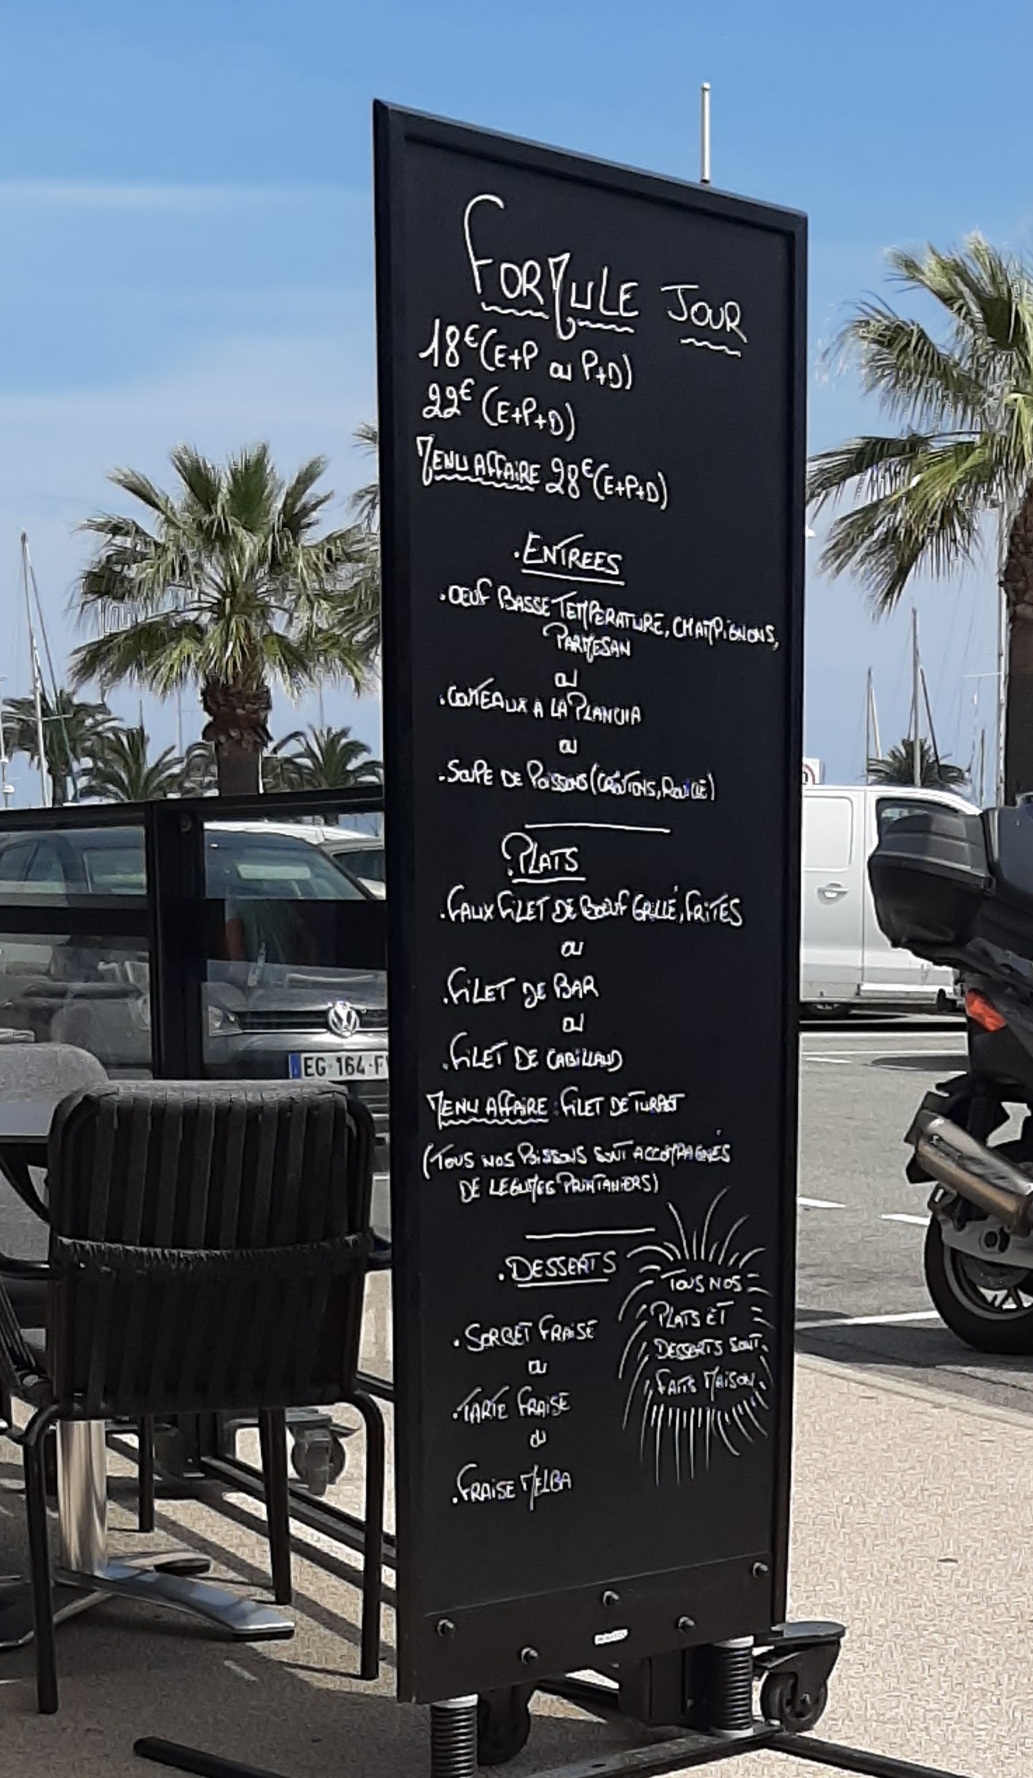 FORMULE JOUR
18€ (E+P ou P+D)
22€ (E+P+D)
MENU AFFAIRE 28€ (E+P+D)
. ENTREES
. OEUF BASSE TEMPERATURE, CHAMPIGNONS,
PARMESAN
ou
. COUTEAUX A LA PLANCHA
ou
. SOUPE DE POISSONS (CROÛTONS, ROUILLE)
. PLATS
. FAUX FILET DE BOEUF GRILLÉ, FRITES
ou
. FILET DE BAR
ou
. FILET DE CABILLAUD
MENU AFFAIRE : FILET DE TURBOT
(TOUS NOS POISSONS SONT ACCOMPAGNÉS
DE LEGUMES PRINTANIERS)
. DESSERTS
. SORBET FRAISE
ou
. TARTE FRAISE
ou
. FRAISE MELBA
TOUS NOS
PLATS ET
DESSERTS SONT
FAITS MAISON
EG-164-F